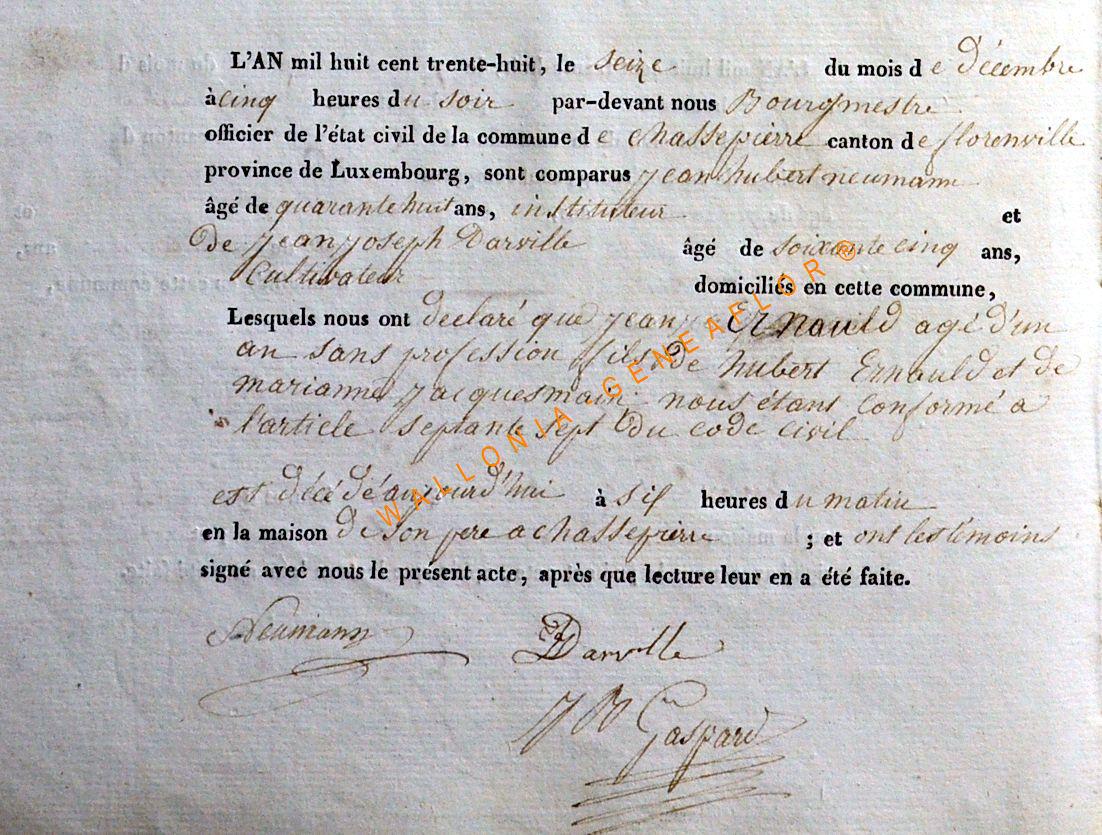 L'AN mil huit cent trente-huit, le seize du mois de décembre
à cinq heures du soir par-devant nous Bourgmestre
officier de l'état civil de la commune de chassepierre canton de florenville
province de Luxembourg, sont comparus jean hubert neumann
âgé de quarante huit ans, instituteur et
de jean joseph Darville âgé de soixante cinq ans,
Cultivateur domiciliés en cette commune,
Lesquels nous ont declaré que jean Ernauld agé d'un
an sans profession fils de hubert Ernauld et de
marianne jacquesmain nous étant conformé a
l'article septante sept du code civil
est décédé aujourd'hui à six heures du matin
en la maison de son pere a chassepierre ; et ont les témoins
signé avec nous le présent acte, après que lecture leur en a été faite.
Neumann Darville
J B Gaspard
WALLONIA GENEAFLOR ®